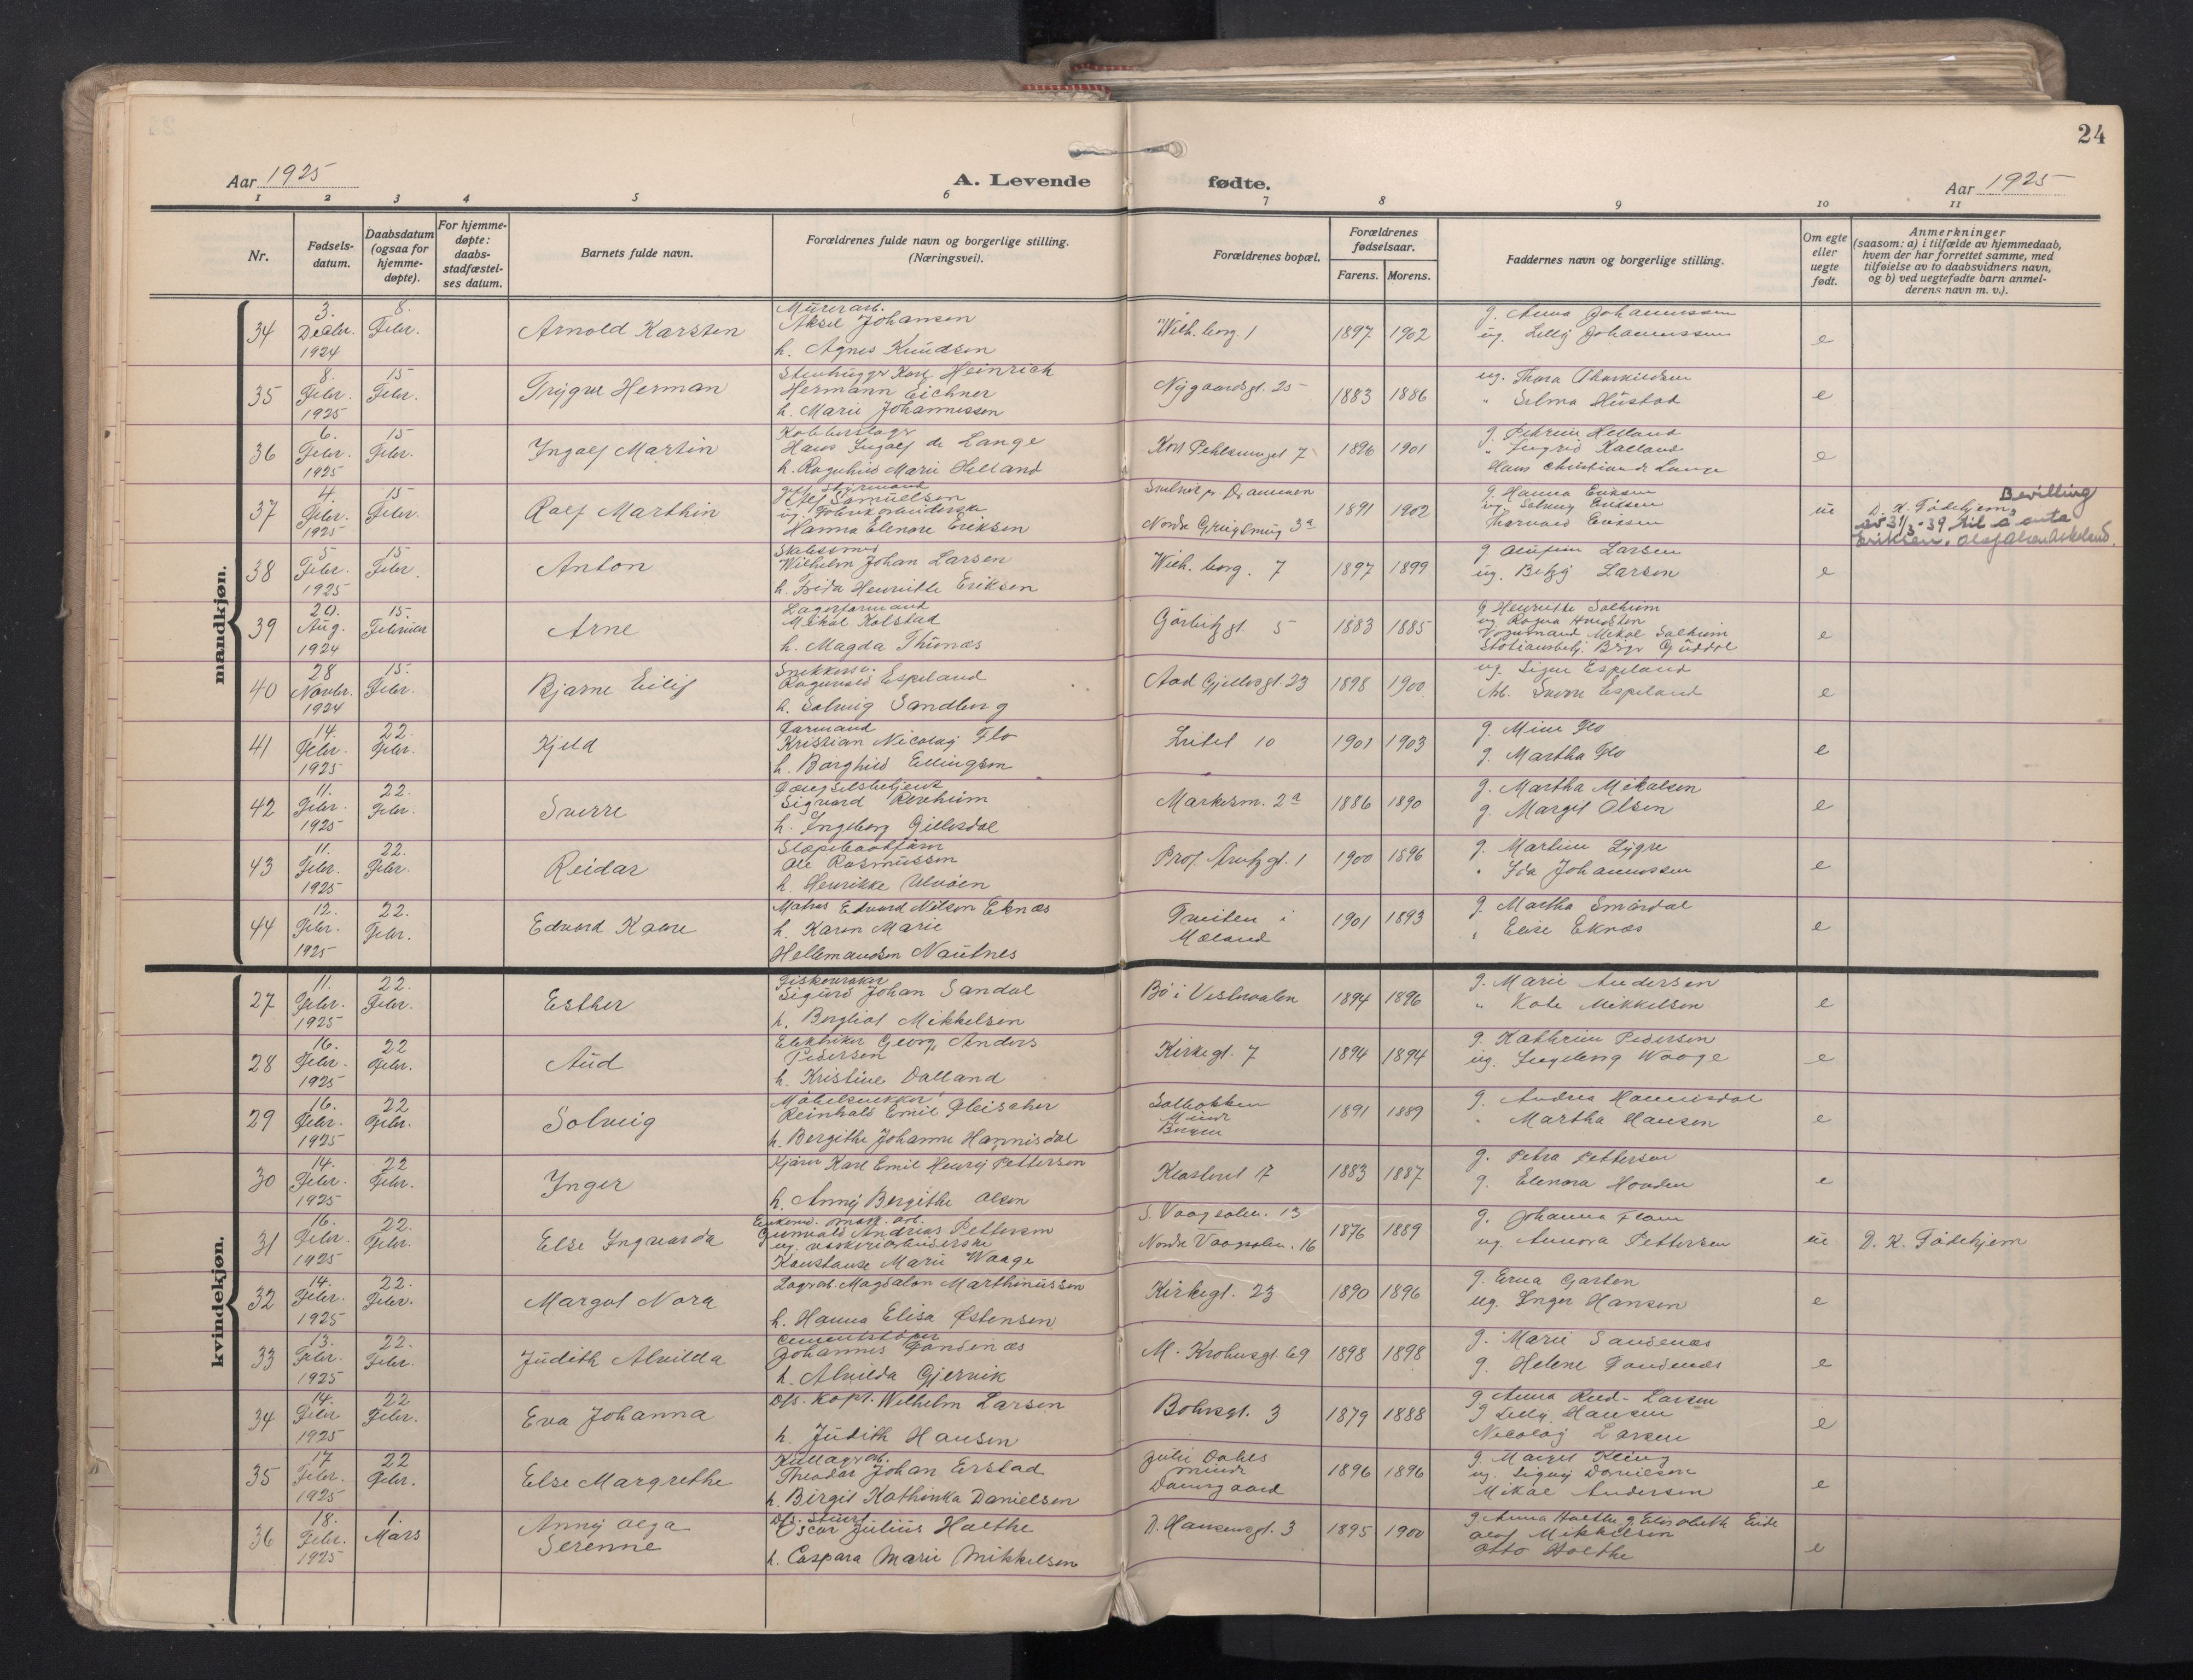 24
Aar 1925
A. Levende fødte.
Aar 1925
1 2 3 4 5 6 7 8 9 10 11
Nr.
Fødsels-
datum.
Daabsdatum
(ogsaa for
hjemme-
døpte).
For hjemme-
døpte:
daabs-
stadfæstel-
ses datum.
Barnets fulde navn.
Forældrenes fulde navn og borgerlige stilling.
(Næringsvei).
Forældrenes bopæl.
Forældrenes
fødselsaar.
Farens. Morens.
Faddernes navn og borgerlige stilling.
Om egte
eller
uegte
født.
Anmerkninger
(saasom: a) i tilfælde av hjemmedaab,
hvem der har forrettet samme, med
tilføielse av to daabsvidners navn,
og b) ved uegtefødte barn anmel-
derens navn m. v.).
mandkjøn.
34 3. Decbr. 1924 8. Febr. Arnold Karsten
Murerarb. Aksel Johansen
h. Agnes Knudsen
Wilh. borg. 1 1897 1902
g. Anna Johannessen
ug. Lilly Johannessen
e
35 8. Febr. 1925 15 Febr. Trygve Herman
Stenhugger Karl Heinrich
Hermann Eichner
h. Marie Johannessen
Nygaardsgt. 25 1883 1886
ug. Thora Thorkildsen
" Selma Hustad
e
36 6. Febr. 1925 15 Febr. Ingolf Martin
Hans Ingolf de Lange
h. Ragnhild Marie Helland
7 1896 1901
g. Petrine Helland
" Ingrid Kalland
Hans Christian de Lange
e
37 4. Febr. 1925 15 Febr. Rolf Marthin
gift Styrmand
Samuelsen
ug. Fabrikarbeiderske
Hanna Elenore Eriksen
pr. Drammen
Nordre Griegsmug 3a 1891 1902
g. Hanna Eriksen
ug. Solveig Eriksen
Harvard Eriksen
ue
D. K. Fødehjem, Bevilling
av 31/3-39 til å anta
Eriksen.
38 5 Febr. 1925 15 Febr. Anton
Wilhelm Johan Larsen
h. Frida Henriette Eriksen
Wilh. borg. 7 1897 1899
g. Larsen
ug. Betzy Larsen
e
39 20. Aug. 1924 15. Februar Arne
Lagerformand
Mikal Kolstad
h. Magda Thunæs
Gørbitz gt. 5 1883 1885
g. Henriette Solheim
ug. Ragna
Vognmand Mikal Solheim
Stationsbetj. Birger Guddal
e
40 28 Novbr. 1924 15. Febr. Bjarne Eilif
Snekkersv.
Ragnvald Espeland
h. Solveig Sandberg
Aad Gjellesgt. 23 1898 1900
ug. Signe Espeland
Arb. Sverre Espeland
e
41 14. Febr. 1925 22. Febr. Kjeld
Formand
Kristian Nicolay Flo
h. Borghild Ellingsen
10 1901 1903
g. Mine Flo
g. Martha Flo
e
42 11. Febr. 1925 22. Febr. Sverre
Fængselsbetjent
Sigvard Revheim
h. Ingeborg Gillesdal
Markesm. 2a 1886 1890
g. Martha Mikalsen
g. Margit Olsen
e
43 11. Febr. 1925 22. Febr. Reidar
Ole Rasmussen
h. Henrikke Ulvøen
Prof. Arentz gt. 1 1900 1896
g. Martine Lygre
" Ida Johannessen
e
44 12. Febr. 1925 22. Febr. Edvard Kaare
Matros Edvard Nilsen Eknæs
h. Karen Marie
Hellemandsen Nautnes
i
Mæland 1901 1893
g. Martha Smørdal
" Elise Eknæs
e
kvindekjøn.
27 11. Febr. 1925 22. Febr. Esther
Fiskevraker
Sigurd Johan Sandal
h. Bergliot Mikkelsen
Bø i Vesteraalen 1894 1896
g. Marie Andersen
" Kate Mikkelsen
e
28 16. Febr. 1925 22 Febr. Aud
Elektriker Georg Anders
Pedersen
h. Kristine Dalland
Kirkegt. 7 1894 1894
g. Kathrine Pedersen
ug. Ingeborg Waage
e
29 16. Febr. 1925 22 Febr. Solveig
Møbelsnekker
Reinhald Emil Fleischer
h. Bergithe Johanne Hannisdal
Solbakken
Minde
Bergen 1891 1889
g. Andrea Hannisdal
" Martha Hansen
e
30 14. Febr. 1925 22 Febr. Ynger
Kjører Karl Emil Henry Pettersen
h. Anny Bergithe Olsen
Klosteret 17 1883 1887
g. Petra Pettersen
g. Elenora Houden
e
31 16. Febr. 1925 22. Febr. Else Yngvarda
Enkemd. mask. arb.
Gunvald Andreas Pettersen
ug. væskeriarbeiderske
Konstanse Marie Waage
S. Vaagsalm. 13
Nordre Vaagsalm. 16 1876 1889
g. Johanna Flam
ug. Annora Pettersen
ue D. K. Fødehjem
32 14. Febr. 1925 22. Febr. Margot Nora
Lagerarb. Magdalon Marthinussen
h. Hanna Elisa Østensen
Kirkegt. 23 1890 1896
g. Erna Garten
ug. Inger Hansen
e
33 13. Febr. 1925 22. Febr. Judith Alvilda
Cementstøper
Johannes Sandenæs
h. Alvilda Gjervik
M. Krohnsgt. 69 1898 1898
g. Marie Sandenæs
g. Helene Sandenæs
e
34 14. Febr. 1925 22 Febr. Eva Johanna
Dfs. Kapt. Wilhelm Larsen
h. Judith Hansen
Bohrsgt. 3 1879 1888
g. Anna Reed-Larsen
g. Lilly Hansen
Nicolay Larsen
e
35 17 Febr. 1925 22 Febr. Else Margrethe
Kullagerarb.
Theodor Johan Erstad
h. Birgit Kathinka Danielsen
Julie Dahls
minde
Damsgaard 1896 1896
g. Margit Kling
ug. Signy Danielsen
Mikal Andersen
e
36 18. Febr. 1925 1. Mars Anny Olga
Serenne
Dfs. Stuert
Oscar Julius Holthe
h. Caspara Marie Mikkelsen
D. Hansensgt. 3 1895 1900
g. Anna Holthe g. Elisabeth Eide
Olaf Mikkelsen
Otto Holthe
e